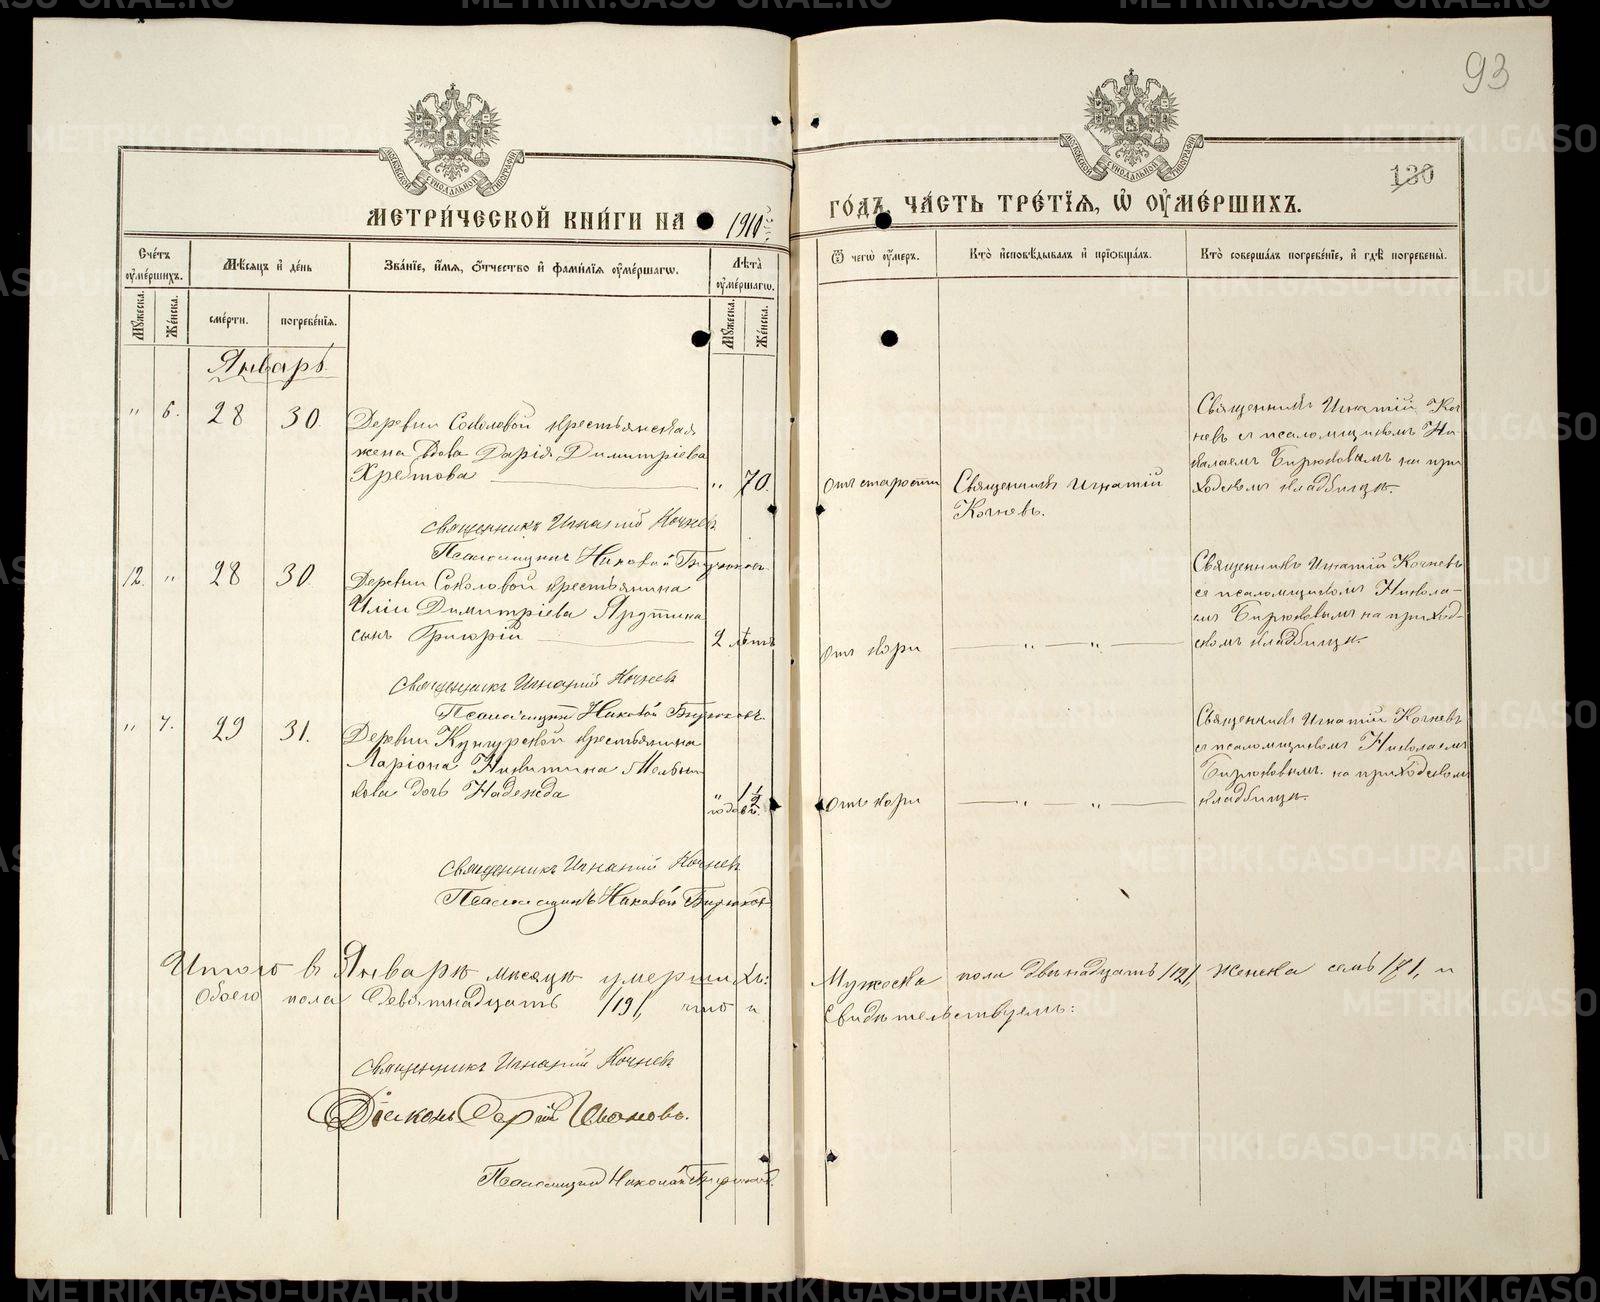 93
130
МЕТРИ́ЧЕСКОЙ КНИ́ГИ НА 1910
ГО́ДЪ, ЧА́СТЬ ТРЕ́ТЇѦ, Ѡ҆ ОУ҆МЕ́РШИХЪ.
Сче́тъ оу҆ме́ршихъ.
Мꙋ́жеска.
Же́нска.
Мѣ́сѧцъ и҆ де́нь
сме́рти.
погребе́нїѧ.
Зва́нїе, и҆́мѧ, ѻ҆́тчество и҆ фами́лїѧ оу҆ме́ршагѡ.
Лѣ́та оу҆ме́ршагѡ.
Мꙋ́жеска.
Же́нска.
Ѿ чегѡ̀ оу҆́меръ.
Кто̀ и҆сповѣ́дывалъ и҆ прїѻбща́лъ.
Кто̀ соверша́лъ погребе́нїе, и҆ гдѣ̀ погребены̀.
Январь
" 6. 28 30.
Деревни Соколовой крестьянская
жена вдова Дарія Димитріева
Хребтова
" 70.
отъ старости
Священникъ Игнатій
Кочневъ.
Священникъ Игнатій Коч
невъ съ псаломщикомъ Ни
колаемъ Бирюковымъ на при
ходскомъ кладбищѣ.
Священникъ Игнатій Кочневъ
Псаломщикъ Николай Бирюковъ
12. " 28 30.
Деревни Соколовой крестьянина
Иліи Димитріева
сынъ Григорій
2 лѣтъ
отъ кори
" "
Священникъ Игнатій Кочневъ
съ псаломщикомъ Никола-
емъ Бирюковымъ на приход-
скомъ кладбищѣ.
Священникъ Игнатій Кочневъ
Псаломщикъ Николай Бирюковъ.
" 7. 29 31.
Деревни Кунгурской крестьянина
Ларіона Никитина Мельни
кова дочь Надежда
" 1 1/2
отъ кори
" "
Священникъ Игнатій Кочневъ
съ псаломщикомъ Николаемъ
Бирюковымъ на приходскомъ
кладбищѣ.
Священникъ Игнатій Кочневъ
Псаломщикъ Николай Бирюковъ
Итого въ Январѣ мѣсяцѣ умершихъ: Мужеска пола двѣнадцать /12/, женска семь /7/, и
обоего пола девятнадцать /19/, что и свидѣтельствуемъ:
Священникъ Игнатій Кочневъ
Діаконъ Сергій Ивановъ.
Псаломщикъ Николай Бирюковъ.
METRIKI.GASO-URAL.RU